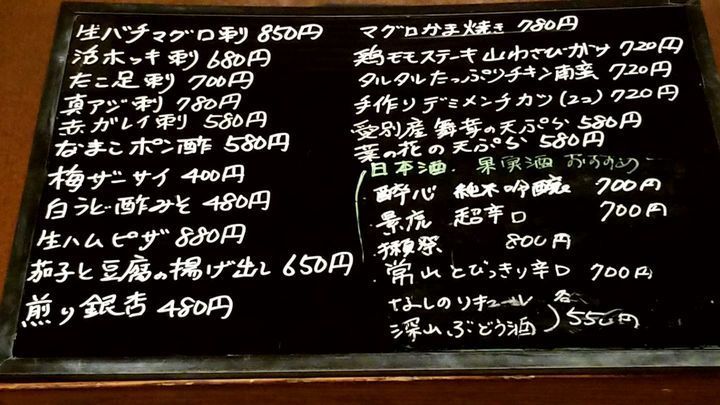 生バチマグロ刺 850円
活ホッキ刺 680円
たこ足刺 700円
真アジ刺 780円
赤ガレイ刺 580円
なまこポン酢 580円
梅ザーサイ 400円
白うど酢みそ 480円
生ハムピザ 880円
茄子と豆腐の揚げ出し 650円
煎り銀杏 480円
マグロかま焼き 780円
鶏モモステーキ山わさびがけ 720円
タルタルたっぷりチキン南蛮 720円
手作りデミメンチカツ(2コ) 720円
愛別産舞茸の天ぷら 580円
菜の花の天ぷら 580円
日本酒・果実酒 おすすめ
酔心 純米吟醸 700円
景虎 超辛口 700円
獺祭 800円
常山とびっきり辛口 700円
なしのリキュール 各
深山ぶどう酒 550円